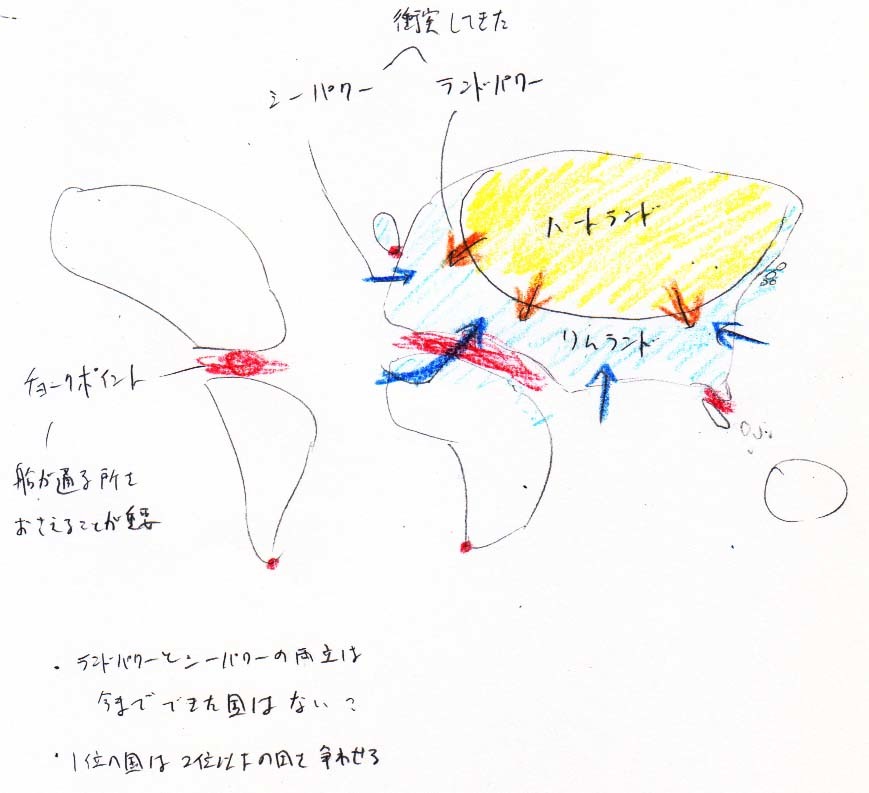 衝突してきた
シーパワー
ランドパワー
ハートランド
リムランド
チョークポイント
船が通る所を
おさえることが重要
・ランドパワーとシーパワーの両立は
今までできた国はない?
・1位の国は2位以下の国を争わせる